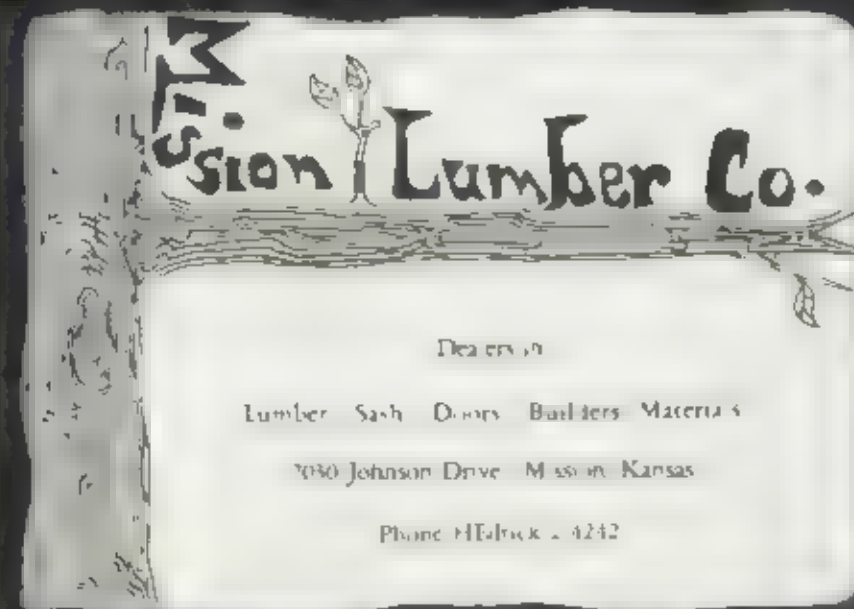 Mission Lumber Co.
Dealers in
Lumber Sash Doors Builders Materials
Johnson Drive Mission Kansas
Phone 4242